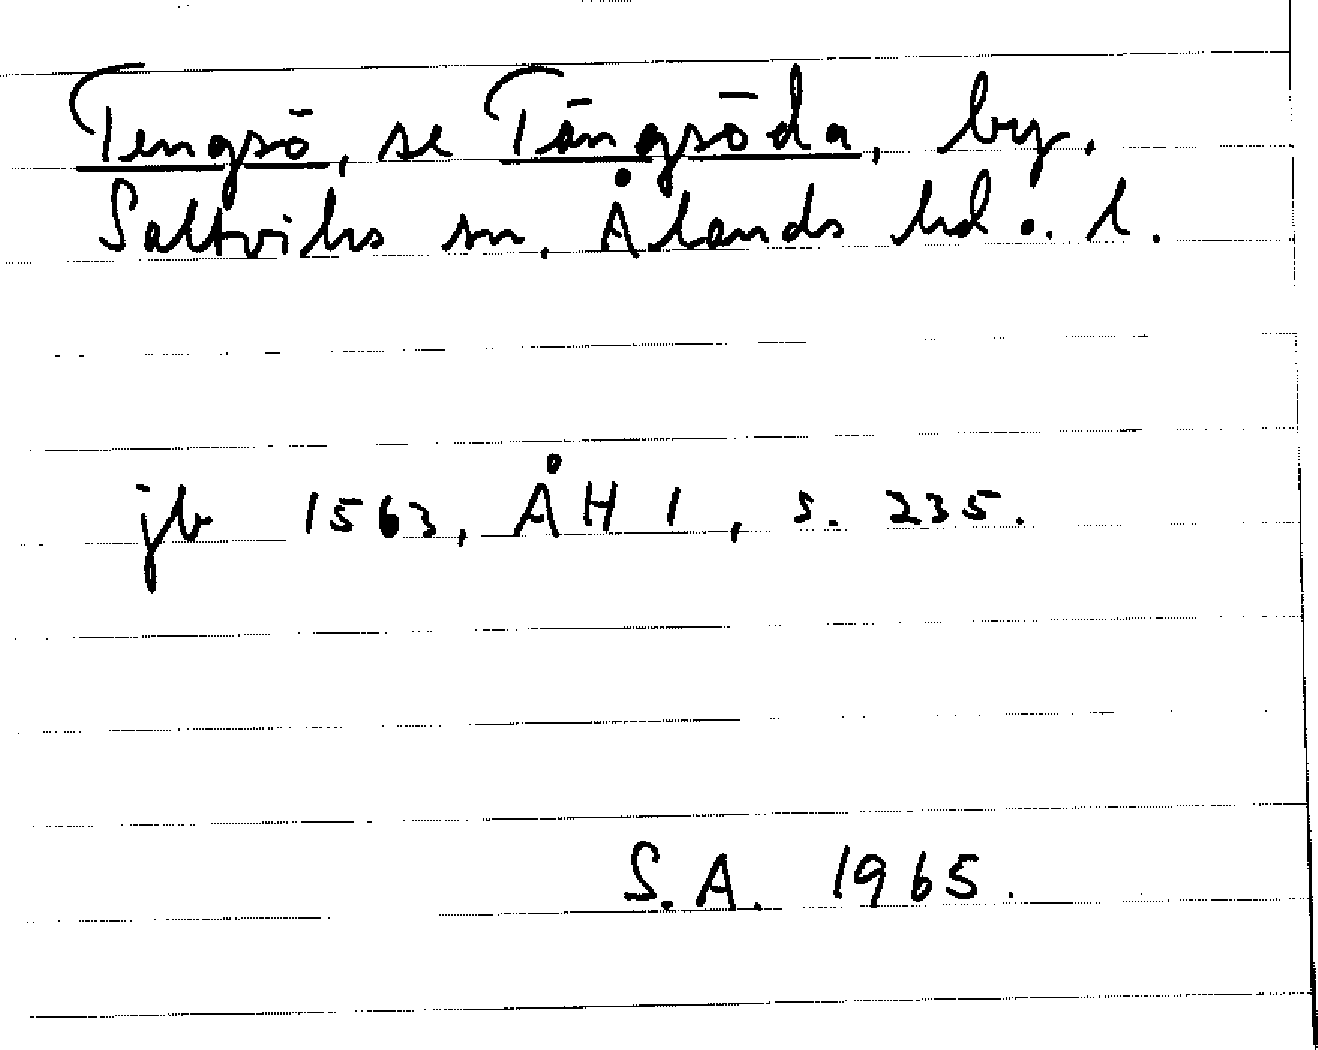 Tengsö, se Tängsöda, by,
Saltviks sn, Ålands hd o. l.
jb 1563, ÅH 1, s. 235.
S.A. 1965.